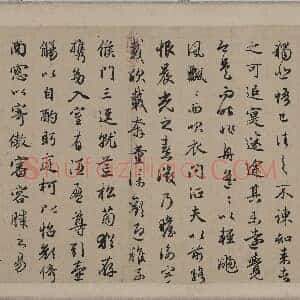 獨悲悟已往之不諫知来者
之可追寔迷途其未遠覺
今是而昨非舟遥遥以輕颺
風飄飄而吹衣問征夫以前路
恨晨光之熹微乃瞻衡宇
載欣載奔童僕歡迎稚子
候門三逕就荒松菊猶存
攜幼入室有酒盈尊引壺
觴以自酌眄庭柯以怡顏倚
南窓以寄傲審容膝之易